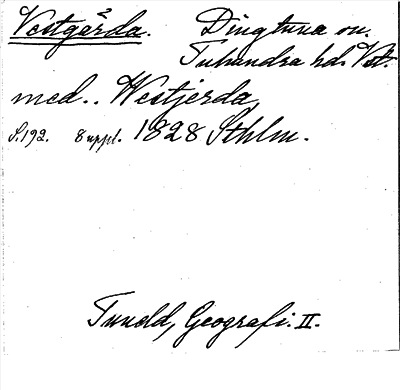 Vestgärda. Dingtuna sn.
Tuhundra hd. Vstm.
med.. Westjerda,
S. 192. 8 uppl. 1828 Sthlm.
Tuneld, Geografi. II.